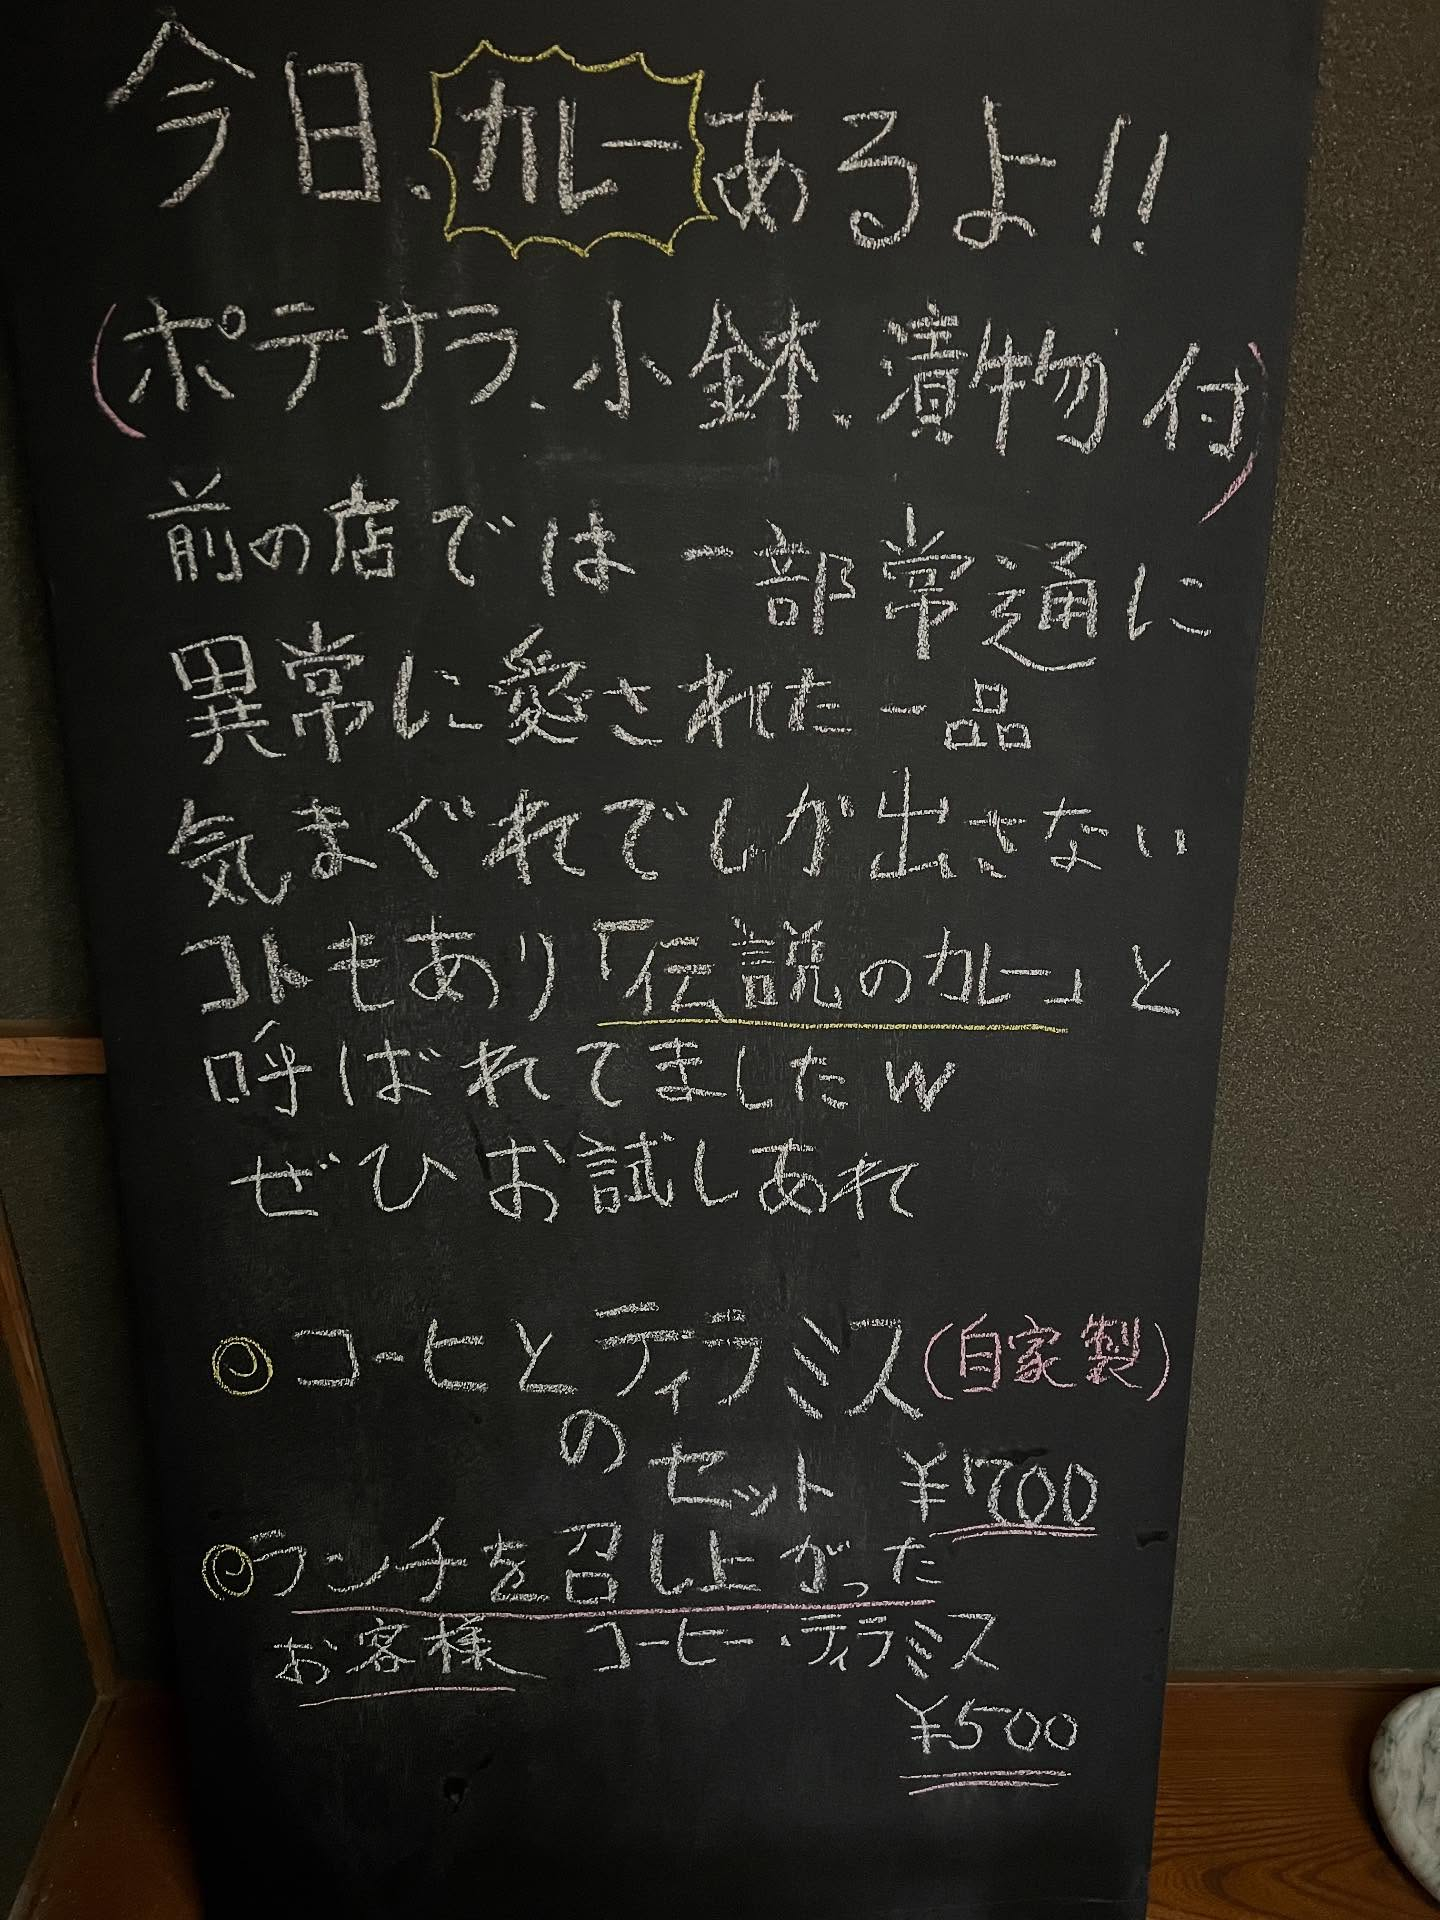 今日、カレーあるよ!!
(ポテサラ、小鉢、漬物付)
前の店では一部常通に
異常に愛された一品
気まぐれでしか出さない
コトもあり「伝説のカレー」と
呼ばれてましたw
ぜひお試しあれ
◎コーヒとティラミス(自家製)
の
セット ¥700
◎ランチを召し上がった
お客様 コーヒー・ティラミス
¥500